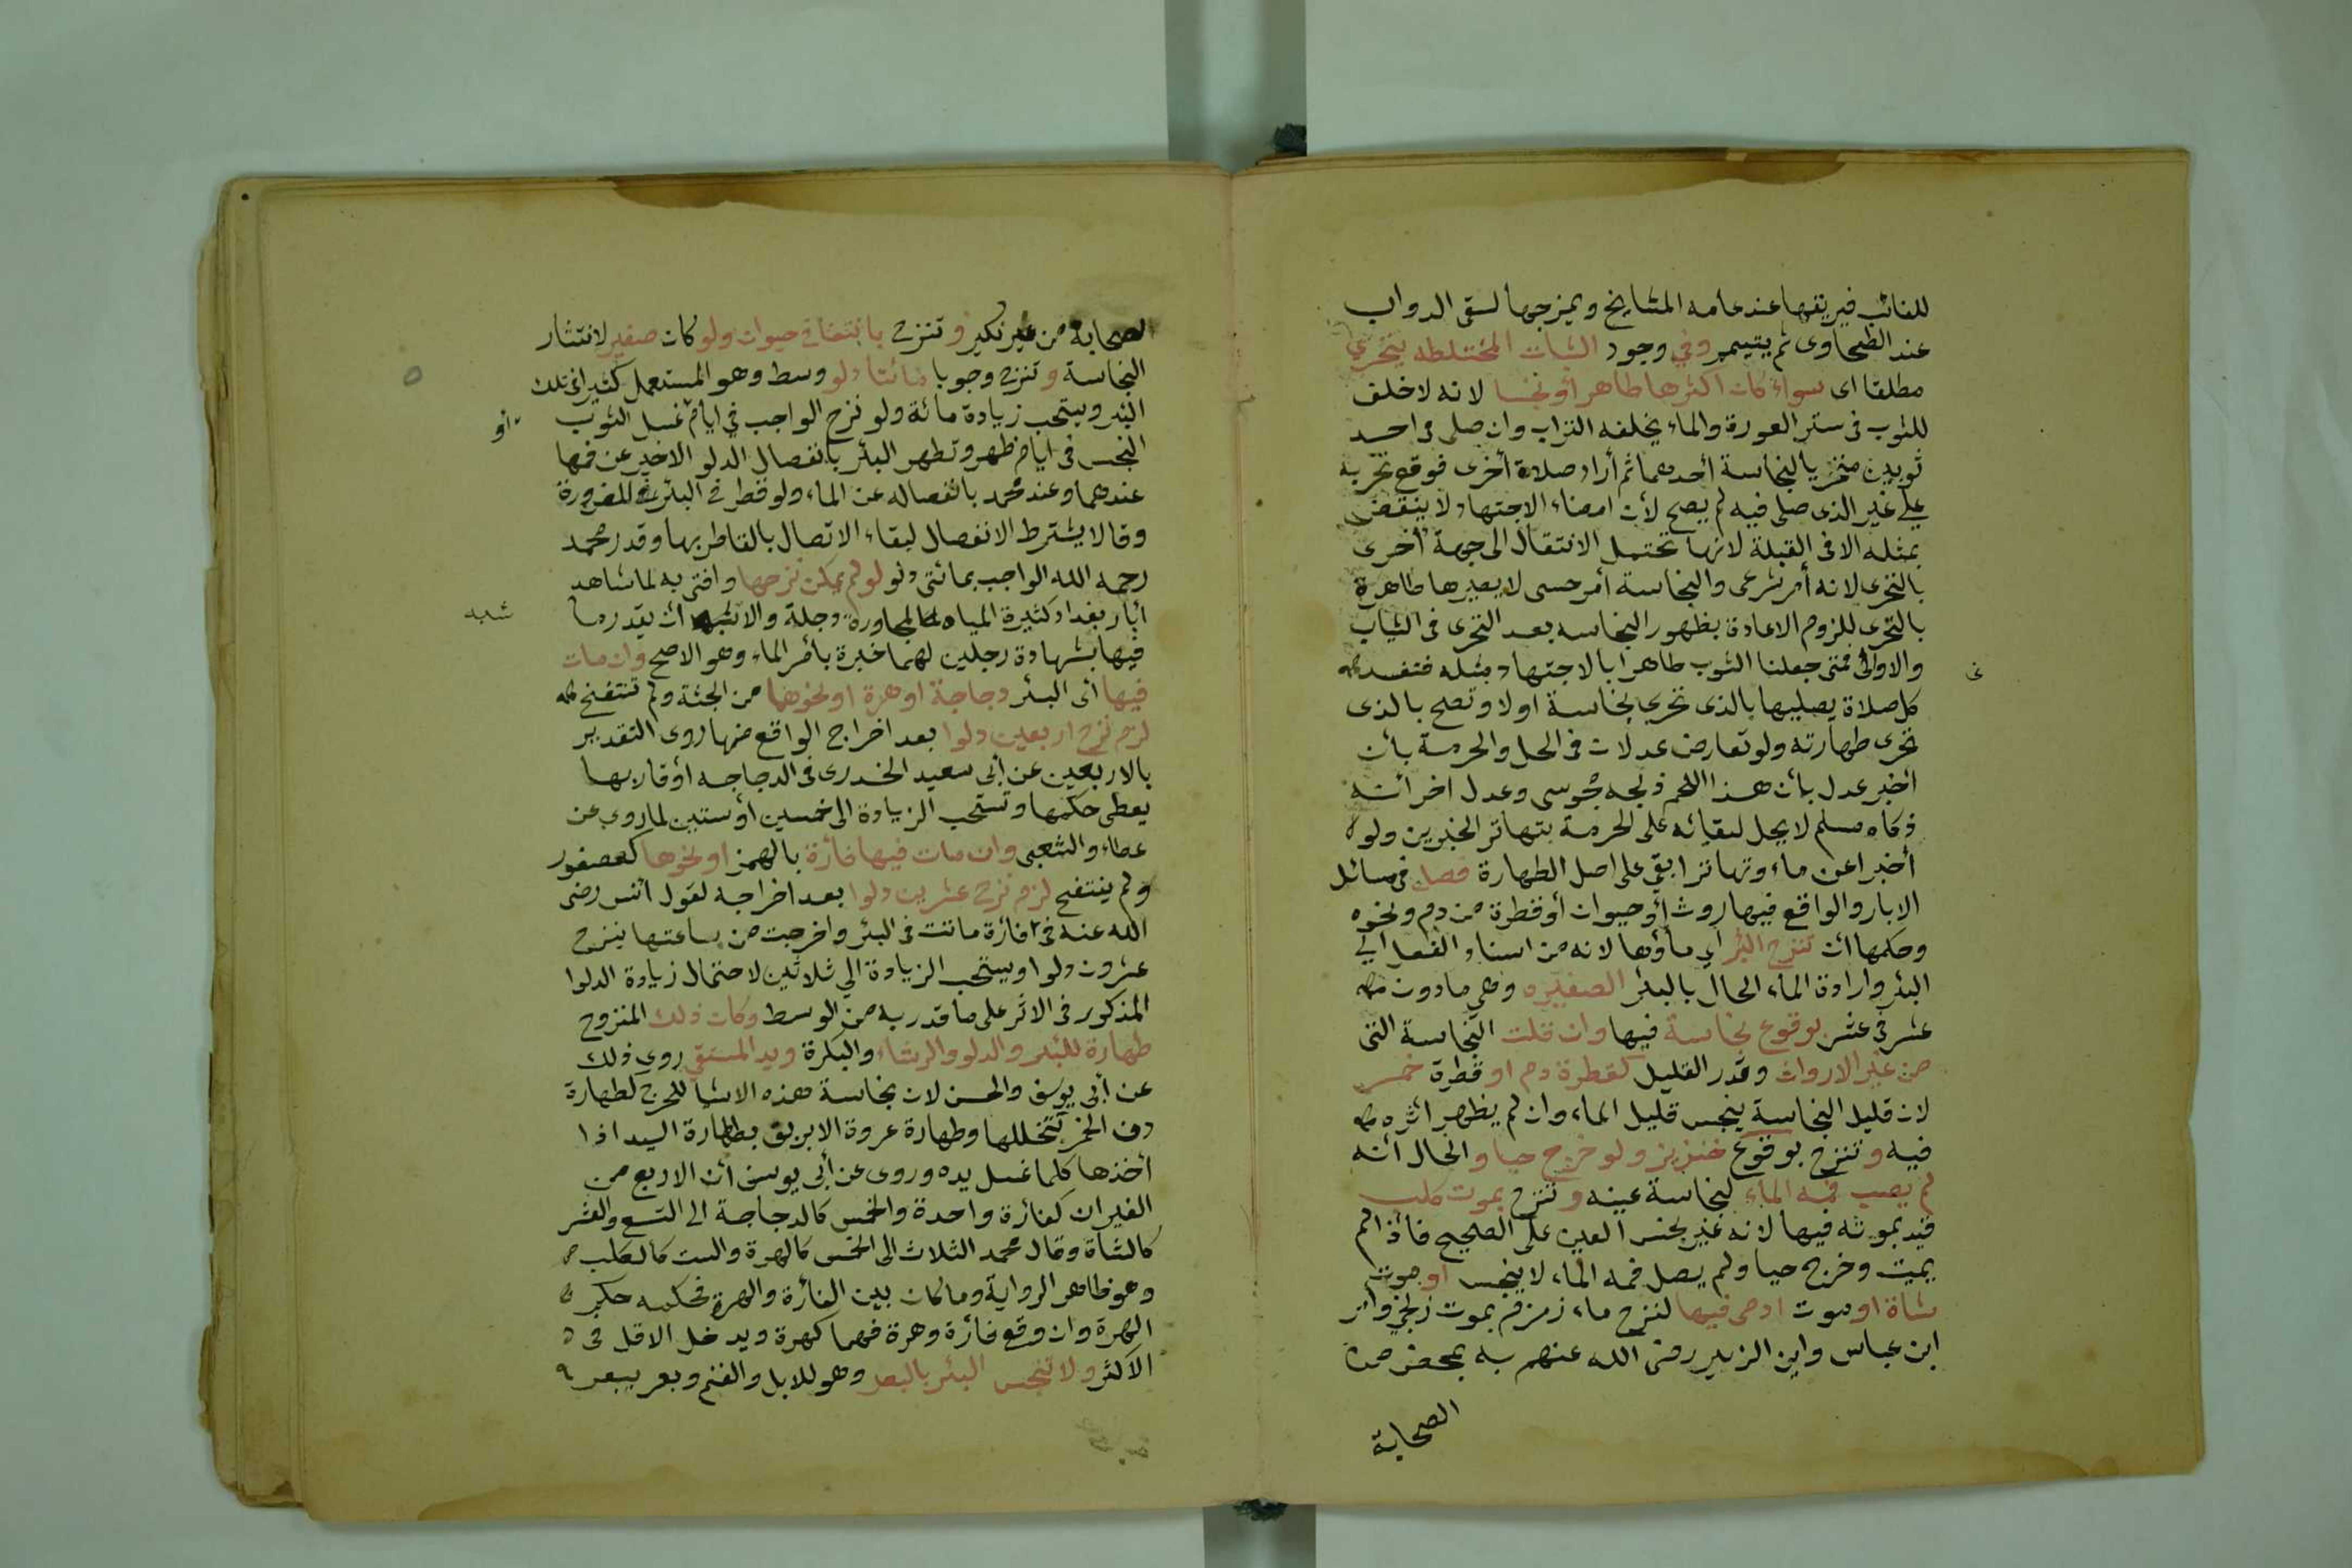 للغالب فيريقها عند عامه المشايخ ويمزجها لسقى الدواب
عند الطحاوى ثم يتيمم وفي وجود الثياب المختلطه يتحري
مطلقا اى سواء كان اكثرها طاهرا أو نجسا لانه لاخلف
للثوب فى ستر العورة والماء يخلفه التراب وان صلى فى احد
ثوبين متحريا لنجاسة أحدهما ثم أراد صلاة أخرى فوقع تحريه
على غير الذى صلى فيه لم يصح لأن امضاء الاجتهاد لا ينقض
بمثله الا فى القبلة لانها تحتمل الانتقال الى جهة أخرى
بالتحرى لانه أمر شرعى والنجاسة أمر حسى لا يصيرها طاهرة
بالتحرى للزوم الاعادة بظهور النجاسه بعد التحرى فى الثياب
والاوانى فمتى جعلنا الثوب طاهرا بالاجتهاد بمثله فتفسد
كل صلاة يصليها بالذى تحري نجاسة اولا وتصح بالذى
تحرى طهارته ولو تعارض عدلان فى الحل والحرمة بأن
اخبر عدل بأن هذا اللحم ذبحه مجوسى وعدل اخر أنه
ذكاه مسلم لا يحل لبقائه على الحرمة بتهاتر الخبرين ولو
أخبرا عن ماء وتهاترا بقى على اصل الطهارة فصل فى مسائل
الابار والواقع فيها روث أو حيوان أو قطرة من دم ونحوه
وحكمها ان تنزح البئر اي ماؤها لانه من اسناد الفعل الى
البئر وارادة الماء الحال بالبئر الصغيره وهي ما دون
عشر في عشر بوقوع نجاسة فيها وان قلت النجاسة التى
من غير الارواث وقدر القليل كقطرة دم او قطرة خمر
لان قليل النجاسة ينجس قليل الماء وان لم يظهر أثره
فيه وتنزح بوقوع خنزير ولو خرج حيا والحال أنه
لم يصب فمه الماء لنجاسة عينه وتنزح بموت كلب
قيد بموته فيها لانه غير نجس العين على الصحيح فأذا لم
يمت وخرج حيا ولم يصل فمه الماء لا ينجس او موت
شاة او موت ادمى فيها لنزح ماء زمزم بموت زنجى وأمر
ابن عباس وابن الزبير رضى الله عنهم به بمحضر من
الصحابة
الصحابة من غير نكير وتنزح بانتفاخ حيوان ولو كان صغيرا لانتشار
النجاسة وتنزح وجوبا مائتا دلو وسط وهو المستعمل كثيرا فى تلك
البئر ويستحب زيادة مائة ولو نزح الواجب في ايام غسل الثوب
او
النجس فى ايام ظهر وتطهر البئر بانفصال الدلو الاخير عن فمها
عندهما وعند محمد بانفصاله عن الماء ولو قطر فى البئر للضرورة
وقالا يشترط الانفصال لبقاء الاتصال بالقاطر بها وقدر محمد
رحمه الله الواجب بمائتى دلو لو لم يمكن نزحها وافتى به لما شاهد
أبار بغداد كثيرة المياه لمجاورة دجلة والاشبه ان يقدر ما
شبه
فيها بشهادة رجلين لهما خبرة بأمر الماء وهو الاصح وان مات
فيها أى البئر دجاجة او هرة او نحوهما من الجثة ولم تنتفخ
لزم نزح اربعين دلوا بعد اخراج الواقع منها روى التقدير
بالاربعين عن أبى سعيد الخدرى فى الدجاجه أو قاربها
يعطى حكمها وتستحب الزيادة الى خمسين أو ستين لما روى عن
عطاء والشعبى وان مات فيها فأرة بالهمز او نحوها كعصفور
ولم ينتفخ لزم نزح عشرين دلوا بعد اخراجه لقول أنس رضى
الله عنه فى فارة ماتت فى البئر واخرجت من ساعتها ينزح
عشرون دلوا ويستحب الزيادة الي ثلاثين لاحتمال زيادة الدلوا
المذكور فى الاثر على ما قدر به من الوسط وكان ذلك المنزوح
طهارة للبئر والدلو والرشاء والبكرة ويد المستقى روى ذلك
عن أبى يوسف والحسن لان نجاسة هذه الاشيا للحرج لطهارة
دن الخمر بتخللها وطهارة عروة الابريق بطهارة اليد اذا
أخذها كلما غسل يده وروى عن أبى يوسف أن الاربع من
الفيران كفأرة واحدة والخمس كالدجاجة الى التسع والعشر
كالشاة وقال محمد الثلاث الى الخمس كالهرة والست كالكلب
وهو ظاهر الرواية وما كان بين الفأرة والهرة فحكمه حكم
الهرة وان وقع فأرة وهرة فهما كهرة ويدخل الاقل فى
الاكثر ولا تنجس البئر بالبعر وهو للابل والغنم وبعر يبعر